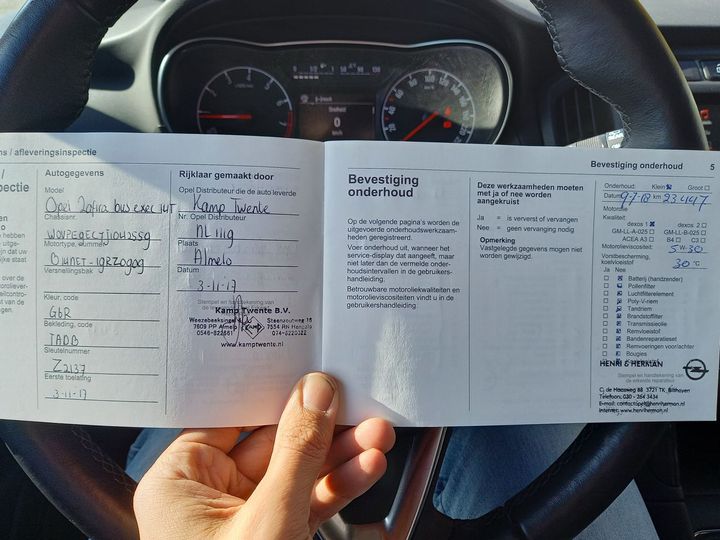 ns / afleveringsinspectie
Autogegevens
Model
Opel Zafira bus exec 1.4T
Chassisnr.
Motortype, nummer
Versnellingsbak
Kleur, code
GbR
Bekleding, code
TADB
Sleutelnummer
Z2137
Eerste toelating
3-11-17
Rijklaar gemaakt door
Opel Distributeur die de auto leverde
Kamp Twente
Nr. Opel Distributeur
NL 111g
Plaats
Almelo
Datum
3-11-17
Kamp Twente B.V.
Weezebeeksingel
7609 PP Almelo
0546-822661
Steenzoutweg 16
7554 RN Hengelo
074-8220322
www.kamptwente.nl
Bevestiging
onderhoud
Op de volgende pagina's worden de
uitgevoerde onderhoudswerkzaam-
heden geregistreerd.
Voer onderhoud uit, wanneer het
service-display dat aangeeft, maar
niet later dan de vermelde onder-
houdsintervallen in de gebruikers-
handleiding.
Betrouwbare motoroliekwaliteiten en
motorolieviscositeiten vindt u in de
gebruikershandleiding.
Deze werkzaamheden moeten
met ja of nee worden
aangekruist
Ja = is ververst of vervangen
Nee = geen vervanging nodig
Opmerking
Vastgelegde gegevens mogen niet
worden gewijzigd.
Bevestiging onderhoud 5
Onderhoud: Klein Groot
Datum 9-7-18 km 23447
Motorolie
Kwaliteit
dexos 1 dexos 2
GM-LL-A-025 GM-LL-B-025
ACEA A3 B4 C3
Motorolieviscositeit: 5W-30
Vorstbescherming,
koelvloeistof 30 °C
Ja Nee
Batterij (handzender)
Pollenfilter
Luchtfilterelement
Poly-V-riem
Tandriem
Brandstoffilter
Transmissieolie
Remvloeistof
Bandenreparatieset
Remvoeringen voor/achter
Bougies
HENRI & HERMAN
Stempel en handtekening van
de erkende reparateur
C. de Haasweg 88 3721 TK Bilthoven
Telefoon: 030 - 264 3434
www.henriherman.nl